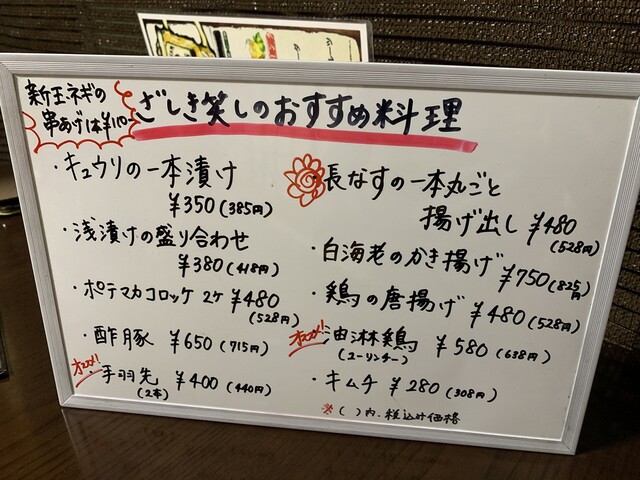 新玉ネギの
串あげ1本¥110-
ざしき笑しのおすすめ料理
・キュウリの一本漬け
¥350(385円)
・浅漬けの盛り合わせ
¥380(418円)
・ポテマカコロッケ2ケ ¥480
(528円)
・酢豚 ¥650(715円)
オススメ!
・手羽先 ¥400(440円)
(2本)
長なすの一本丸ごと
揚げ出し ¥480
(528円)
・白海老のかき揚げ ¥750(825円)
・鶏の唐揚げ ¥480(528円)
オススメ!
油淋鶏 ¥580(638円)
(ユーリンチー)
・キムチ ¥280(308円)
※( )内、税込み価格